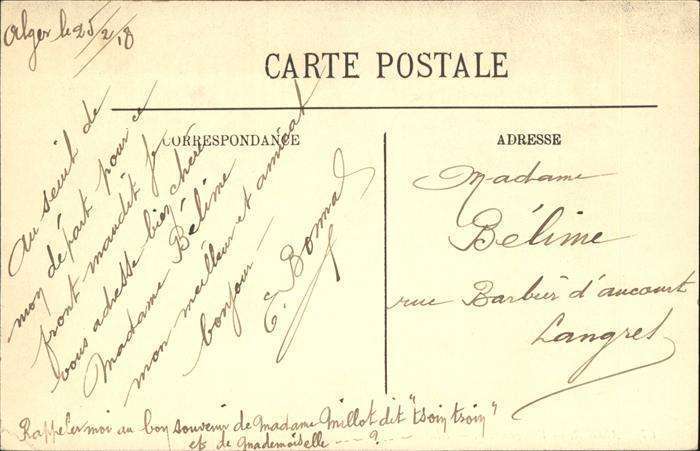 Alger le 25/2/18
CARTE POSTALE
CORRESPONDANCE
Au seuil de
mon départ pour ce
front maudit je
vous adresse bien chère
Madame Bélime
mon meilleur et amical
bonjour —
E. Bonnal
ADRESSE
Madame
Bélime
rue Barbier d'aucourt
Langres
Rappeler moi au bon souvenir de Madame Millot dit "tsoin tsoin"
et de Mademoiselle ---- ? ----